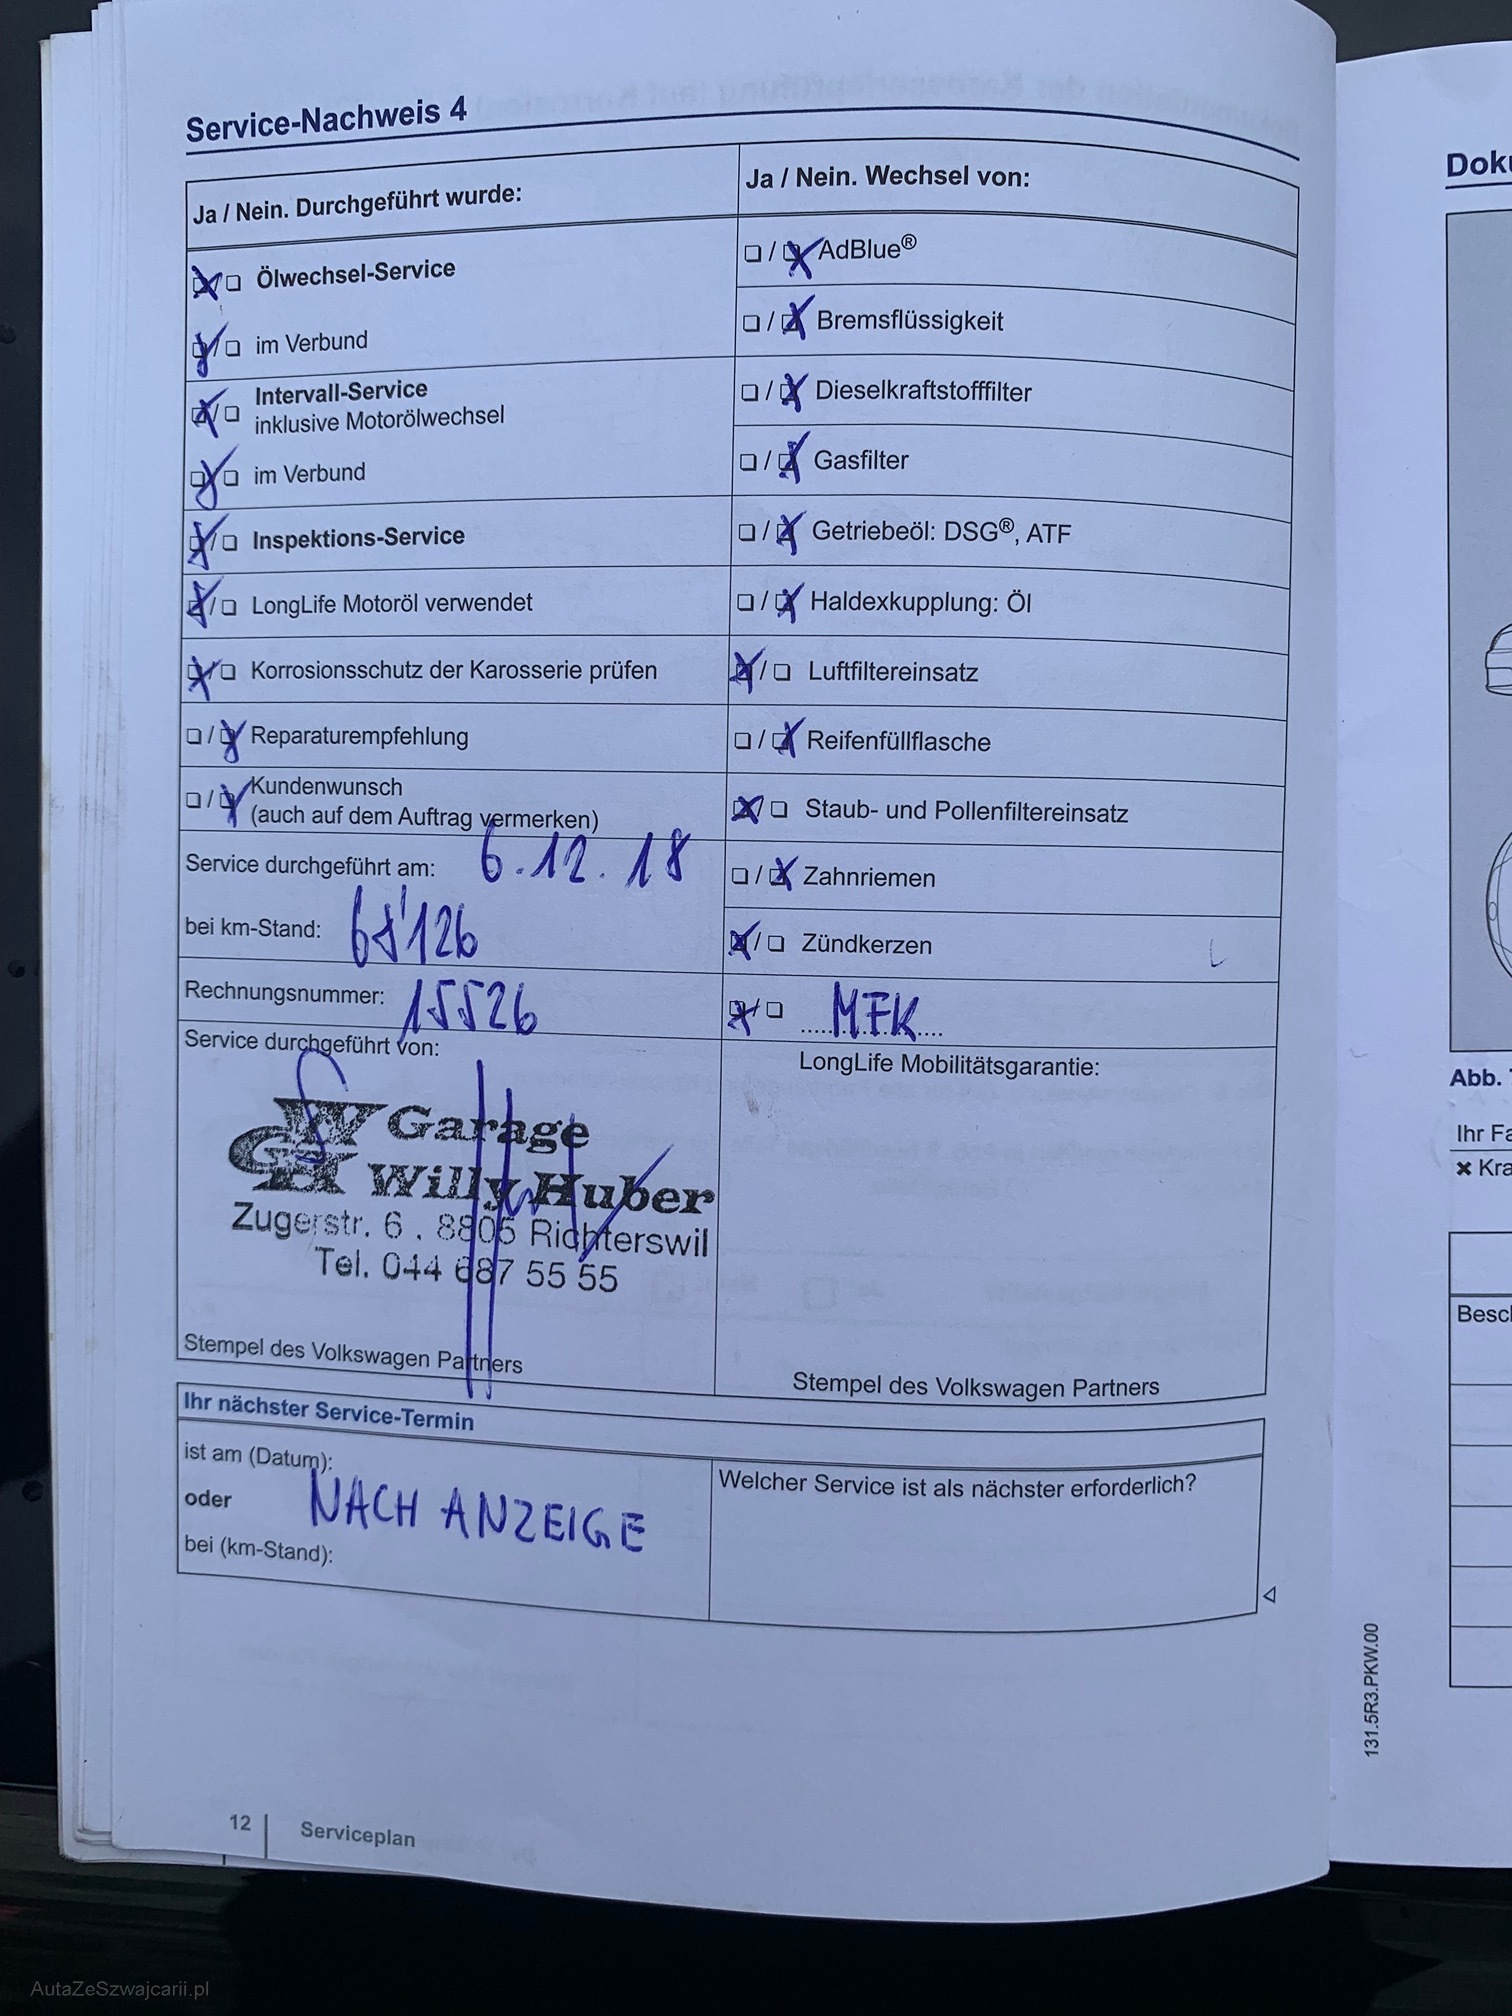 Service-Nachweis 4
Ja / Nein. Durchgeführt wurde:
☒/☐ Ölwechsel-Service
☒/☐ im Verbund
☒/☐ Intervall-Service
inklusive Motorölwechsel
☒/☐ im Verbund
☒/☐ Inspektions-Service
☒/☐ LongLife Motoröl verwendet
☒/☐ Korrosionsschutz der Karosserie prüfen
☐/☒ Reparaturempfehlung
☐/☒ Kundenwunsch
(auch auf dem Auftrag vermerken)
Service durchgeführt am: 6.12.18
bei km-Stand: 68'126
Rechnungsnummer: 15526
Service durchgeführt von:
Garage
Willy Huber
Zugerstr. 6 . 8805 Richterswil
Tel. 044 687 55 55
Stempel des Volkswagen Partners
Ja / Nein. Wechsel von:
☐/☒ AdBlue®
☐/☒ Bremsflüssigkeit
☐/☒ Dieselkraftstofffilter
☐/☒ Gasfilter
☐/☒ Getriebeöl: DSG®, ATF
☐/☒ Haldexkupplung: Öl
☒/☐ Luftfiltereinsatz
☐/☒ Reifenfüllflasche
☒/☐ Staub- und Pollenfiltereinsatz
☐/☒ Zahnriemen
☒/☐ Zündkerzen
☒/☐ MFK
LongLife Mobilitätsgarantie:
Stempel des Volkswagen Partners
Ihr nächster Service-Termin
ist am (Datum):
oder NACH ANZEIGE
bei (km-Stand):
Welcher Service ist als nächster erforderlich?
12 Serviceplan
131.5R3.PKW.00
Abb.
Ihr
AutaZeSzwajcarii.pl